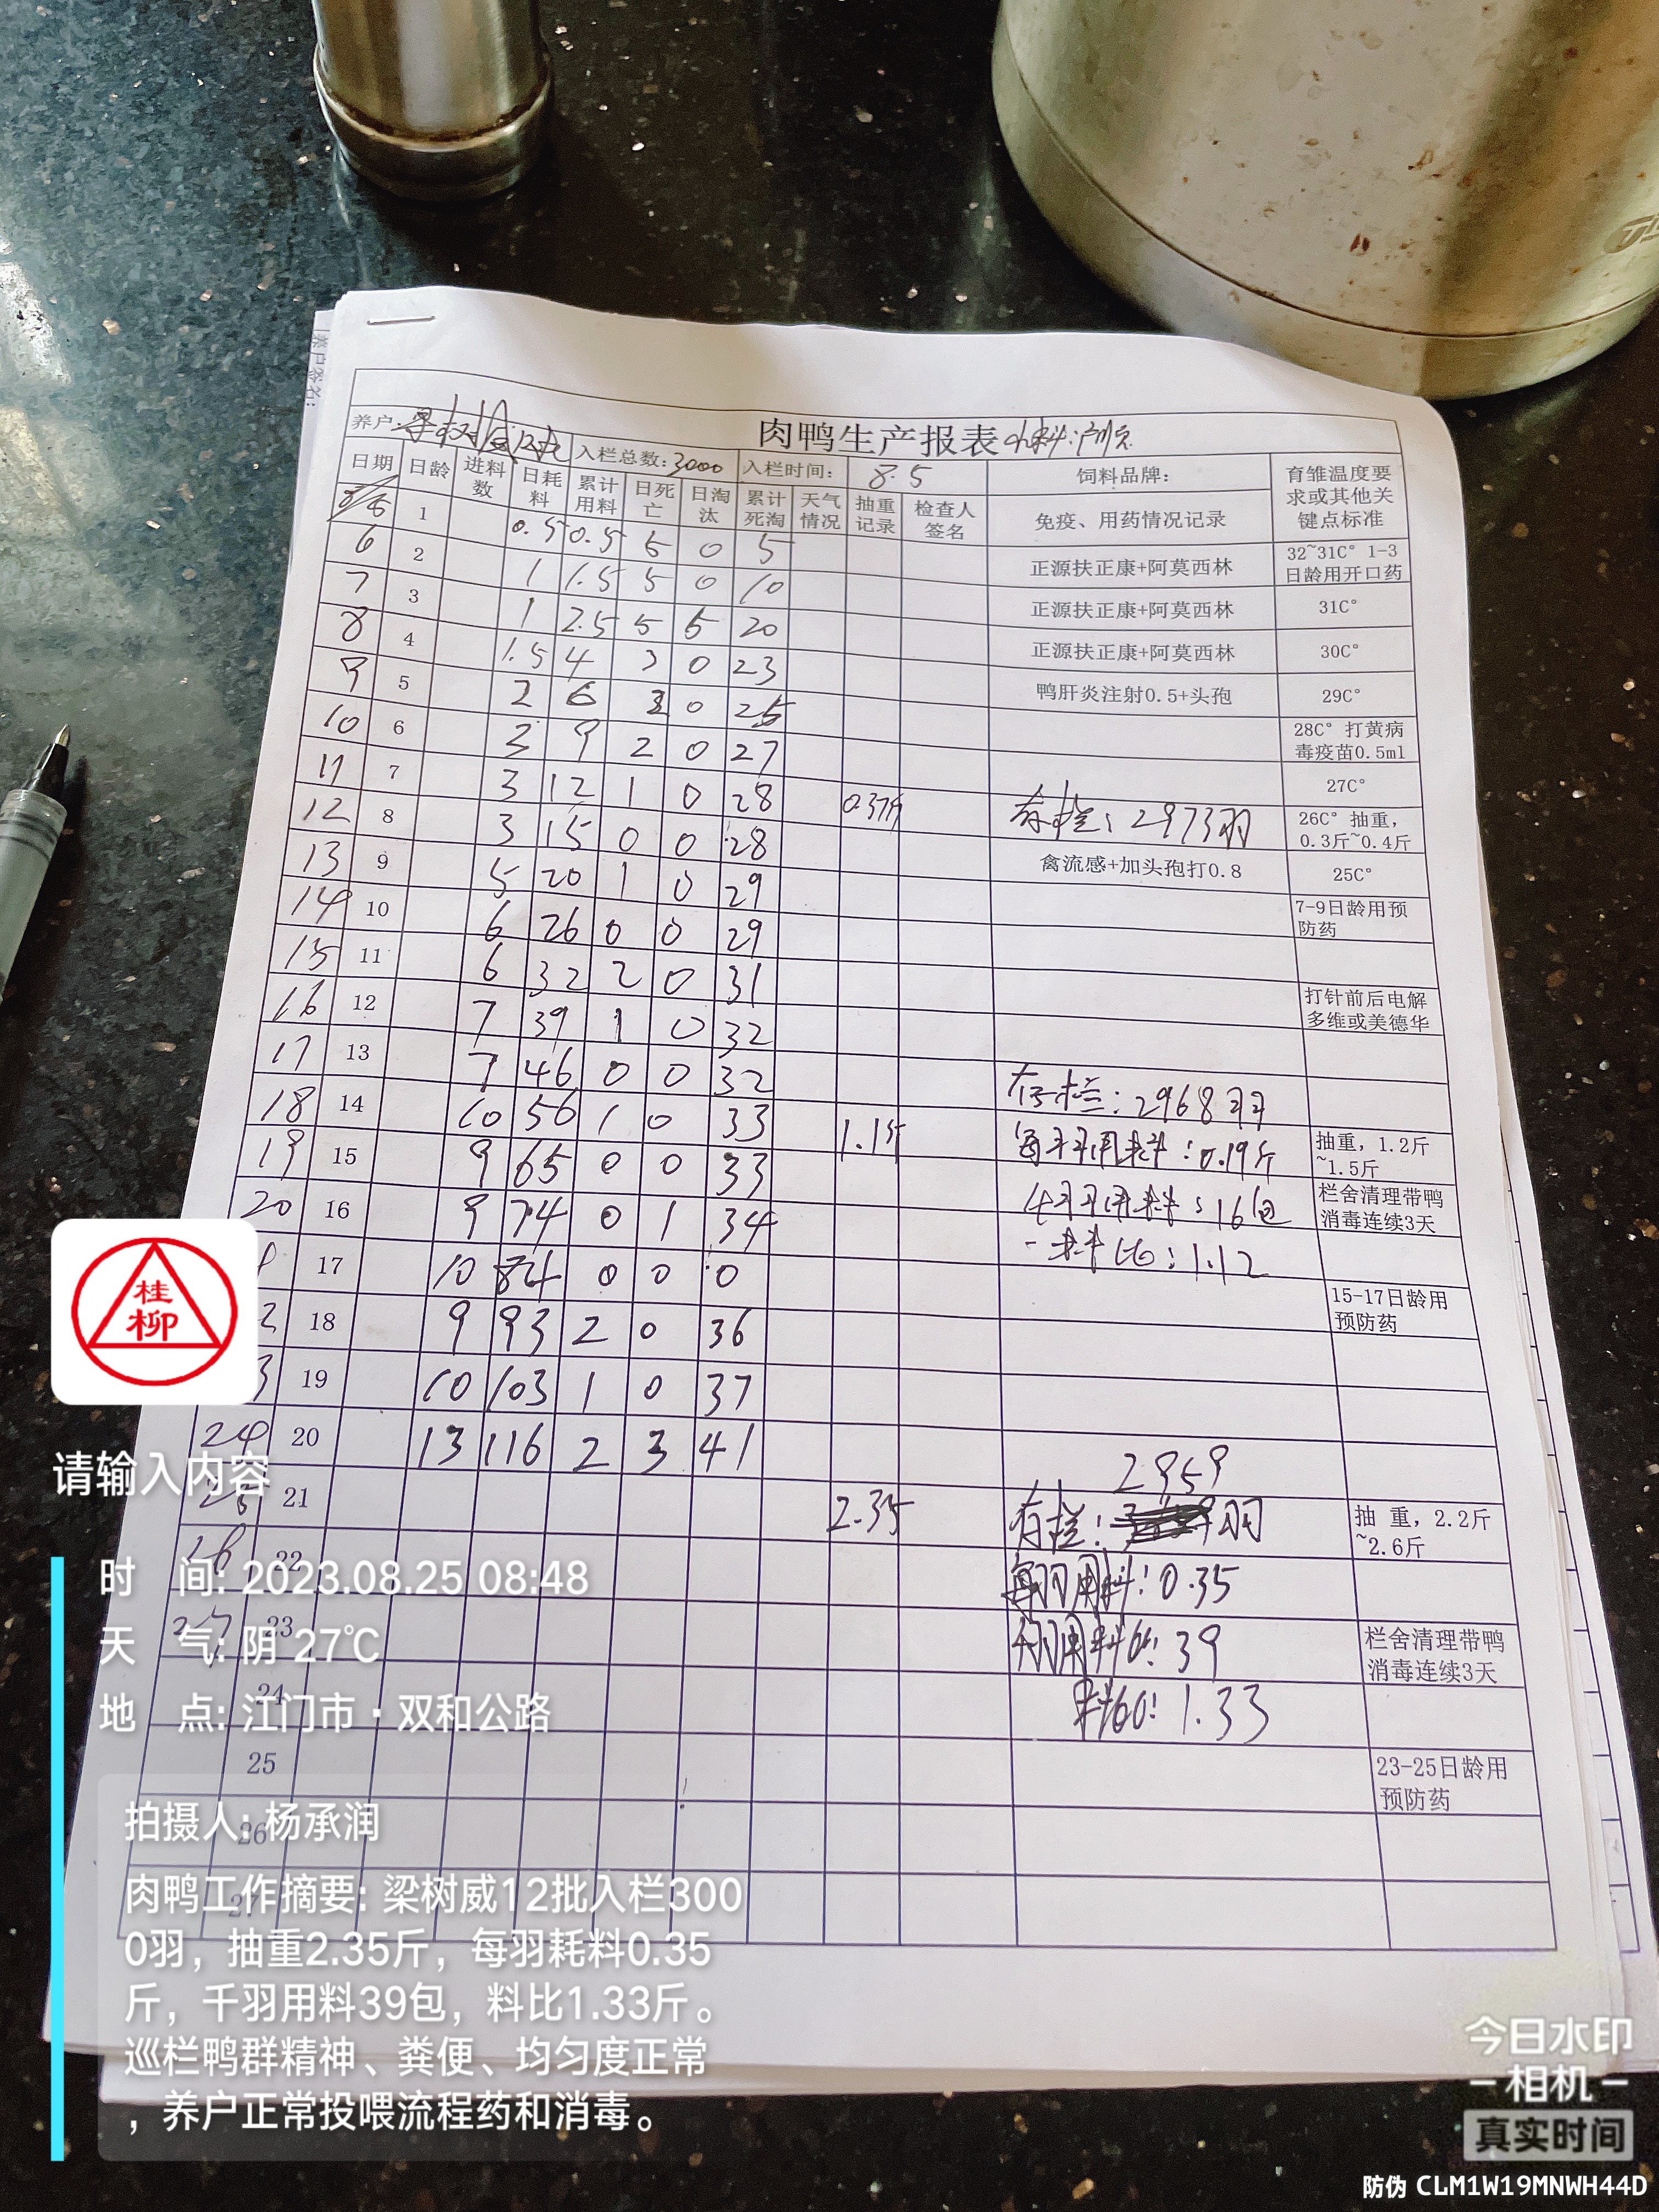 养户签名:
肉鸭生产报表
养户: 入栏总数: 3000 入栏时间: 8.5 饲料品牌: 育雏温度要求或其他关键点标准
日期 日龄 进料数 日耗料 累计用料 日死亡 日淘汰 累计死淘 天气情况 抽重记录 检查人签名 免疫、用药情况记录
1 0.5 0.5 5 0 5 正源扶正康+阿莫西林 32~31C° 1-3日龄用开口药
6 2 1 1.5 5 0 10 正源扶正康+阿莫西林 31C°
7 3 1 2.5 5 5 20 正源扶正康+阿莫西林 30C°
8 4 1.5 4 3 0 23 鸭肝炎注射0.5+头孢 29C°
9 5 2 6 2 0 25 28C° 打黄病毒疫苗0.5ml
10 6 3 9 2 0 27 27C°
11 7 3 12 1 0 28 0.37斤 存栏: 2973羽 26C° 抽重, 0.3斤~0.4斤
12 8 3 15 0 0 28 禽流感+加头孢打0.8 25C°
13 9 5 20 1 0 29 7-9日龄用预防药
14 10 6 26 0 0 29
15 11 6 32 2 0 31 打针前后电解多维或美德华
16 12 7 39 1 0 32
17 13 7 46 0 0 32 存栏: 2968羽
18 14 10 56 1 0 33 1.1斤 每羽用料: 0.19斤 抽重, 1.2斤~1.5斤
19 15 9 65 0 0 33 千羽用料: 16包 栏舍清理带鸭消毒连续3天
20 16 9 74 0 1 34 料比: 1.12
17 10 84 0 0 0 15-17日龄用预防药
2 18 9 93 2 0 36
3 19 10 103 1 0 37
24 20 13 116 2 3 41
2959
25 21 2.35 存栏: 羽 抽 重, 2.2斤~2.6斤
26 22 每羽用料: 0.35
27 23 千羽用料包: 39 栏舍清理带鸭消毒连续3天
24 料比: 1.33
25 23-25日龄用预防药
26
27
桂柳
请输入内容
时 间: 2023.08.25 08:48
天 气: 阴 27℃
地 点: 江门市·双和公路
拍摄人: 杨承润
肉鸭工作摘要: 梁树威12批入栏300
0羽，抽重2.35斤，每羽耗料0.35
斤，千羽用料39包，料比1.33斤。
巡栏鸭群精神、粪便、均匀度正常
，养户正常投喂流程药和消毒。
今日水印
相机
真实时间
防伪 CLM1W19MNWH44D